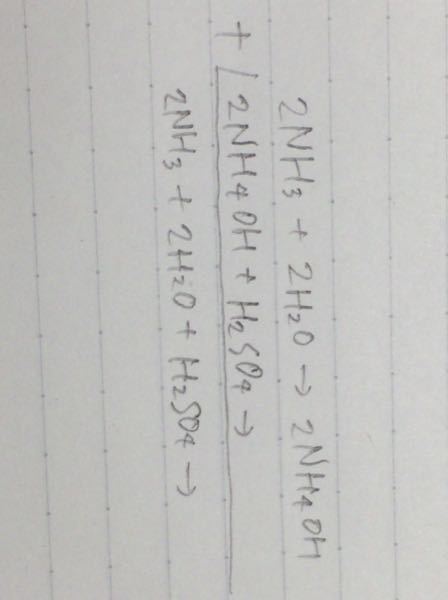 2NH₃ + 2H₂O → 2NH₄OH
+) 2NH₄OH + H₂SO₄ →
2NH₃ + 2H₂O + H₂SO₄ →